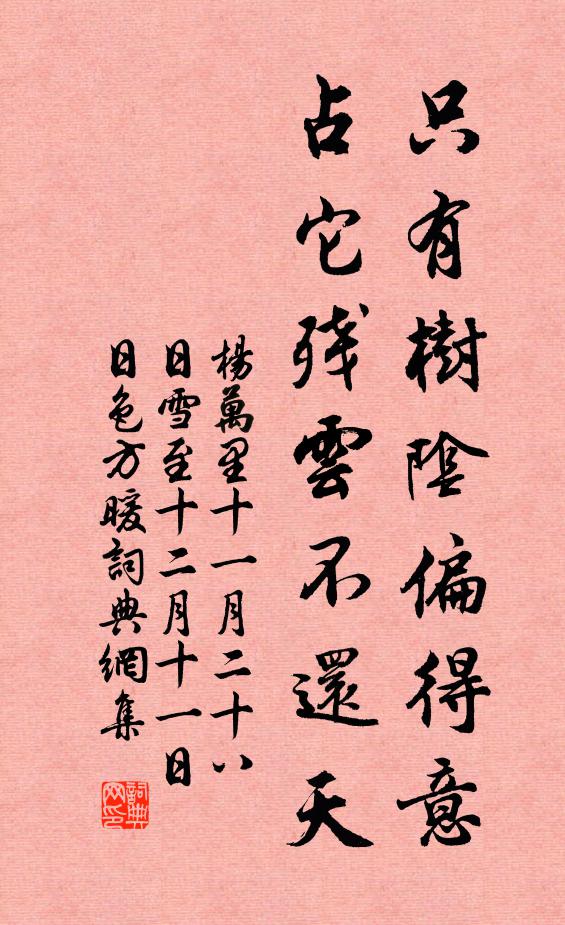 只有樹陰偏得意
占它殘雲不還天
楊萬里十一月二十八
日雪至十二月十一日
日色方暖詞典網集
詞典网印